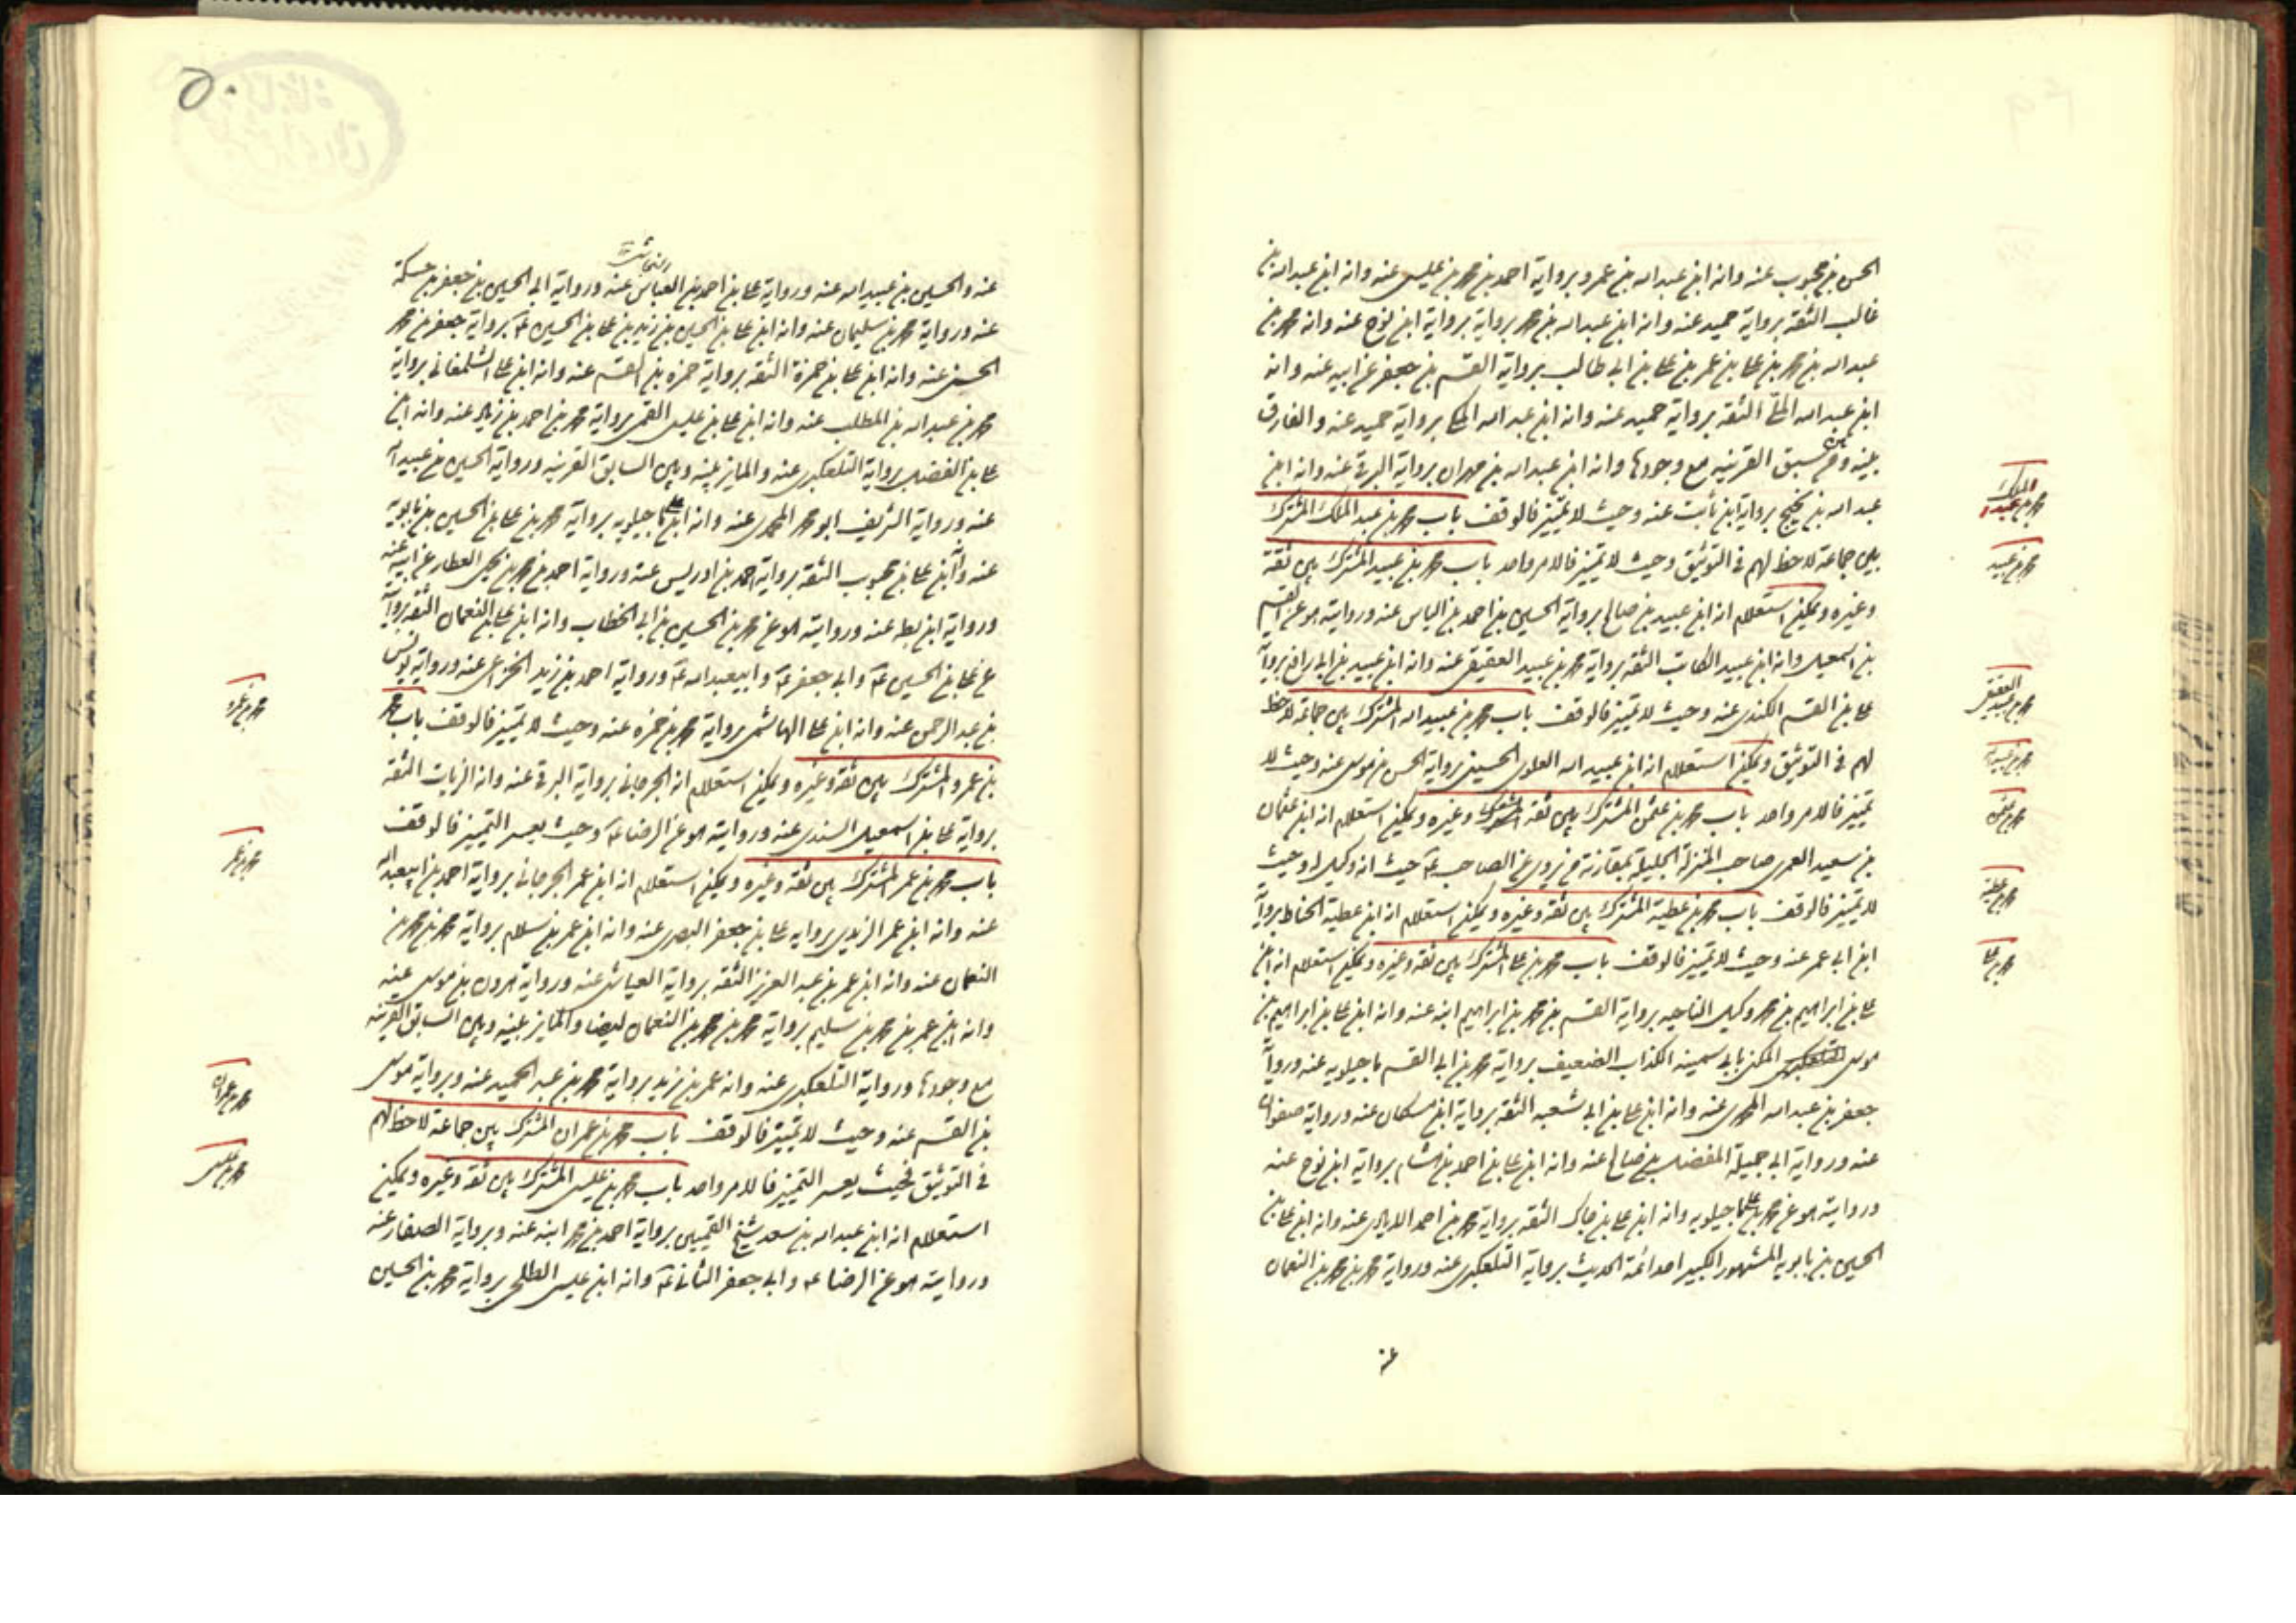 الحسن بن محبوب عنه وانه ابن عبد الله بن عمرو برواية احمد بن محمد بن عيسى عنه وانه ابن عبد الله بن
غالب الثقة برواية حميد عنه وانه ابن عبد الله بن محمد برواية برواية ابن نوح عنه وانه محمد بن
عبد الله بن محمد بن علي بن عمر بن علي بن ابي طالب برواية القسم بن جعفر عن ابيه عنه وانه
ابن عبد الله الثقة برواية حميد عنه وانه ابن عبد الله برواية حميد عنه والفارق
بينه وبين من سبق القرينه مع وجودها وانه ابن عبد الله بن مهران برواية البرقي عنه وانه ابن
عبد الله بن نجيح برواية ابن ثابت عنه وحيث لا تمييز فالوقف باب محمد بن عبد الملك المشترك
بين جماعة لا حظ لهم في التوثيق وحيث لا تمييز فالامر واحد باب محمد بن عبيد المشترك بين ثقة
وغيره ويمكن استعلام انه ابن عبيد بن صالح برواية الحسين بن احمد بن الياس عنه وروايته هو عن القسم
بن اسمعيل وانه ابن عبيد الكاتب الثقة برواية محمد بن عبيد العقيقي عنه وانه ابن عبيد بن ابي رافع برواية
علي بن القسم الكندي عنه وحيث لا تمييز فالوقف باب محمد بن عبيد الله المشترك بين جماعة لا حظ
لهم في التوثيق ويمكن استعلام انه ابن عبيد الله العلوي الحسيني برواية الحسن بن موسى عنه وحيث لا
تمييز فالامر واحد باب محمد بن عثمن المشترك بين ثقة وغيره ويمكن استعلام انه ابن عثمان
بن سعيد العمري صاحب المنزلة الجليلة بمقارنة من يروي عن الصاحب عه حيث انه وكيل له وحيث
لا تمييز فالوقف باب محمد بن عطية المشترك بين ثقة وغيره ويمكن استعلام انه ابن عطية الحناط برواية
ابن ابي عمير عنه وحيث لا تمييز فالوقف باب محمد بن علي المشترك بين ثقة وغيره ويمكن استعلام انه ابن
علي بن ابراهيم بن محمد وكيل الناحيه برواية القسم بن محمد بن ابراهيم ابنه عنه وانه ابن علي بن ابراهيم بن
موسى المكنى بابي سمينه الكذاب الضعيف برواية محمد بن ابي القسم ماجيلويه عنه ورواية
جعفر بن عبد الله المحمدي عنه وانه ابن علي بن ابي شعبه الثقة برواية ابن مسكان عنه ورواية صفوان
عنه ورواية ابي جميلة المفضل بن صالح عنه وانه ابن علي بن احمد بن هشام برواية ابن نوح عنه
وروايته هو عن محمد بن علي ماجيلويه وانه ابن علي بن جاك الثقة برواية محمد بن احمد عنه وانه ابن علي بن
الحسين بن بابويه المشهور الكبير احد ائمة الحديث برواية التلعكبري عنه ورواية محمد بن محمد بن النعمان
عنه
محمد بن عبد الملك
محمد بن عبيد
محمد بن عبيد العقيقي
محمد بن عبيد الله
محمد بن عثمن
محمد بن عطية
محمد بن علي
٥٠
عنه والحسين بن عبيد الله عنه ورواية علي بن احمد بن العباس عنه ورواية ابي الحسين بن جعفر بن حسكة
عنه ورواية محمد بن سليمان عنه وانه ابن علي بن الحسين بن زيد بن علي بن الحسين عه برواية جعفر بن محمد
الحسني عنه وانه ابن علي بن حمزة الثقه برواية حمزه بن القسم عنه وانه ابن علي الشلمغاني برواية
محمد بن عبد الله بن المطلب عنه وانه ابن علي بن عيسى القمي برواية محمد بن احمد بن زياد عنه وانه ابن
علي بن الفضل برواية التلعكبري عنه والمايز بينه وبين السابق القرينه ورواية الحسين بن عبيد الله
عنه ورواية الشريف ابو محمد المحمدي عنه وانه ابن علي ماجيلويه برواية محمد بن علي بن الحسين بن بابويه
عنه وانه ابن علي بن محبوب الثقه برواية احمد بن ادريس عنه ورواية احمد بن محمد بن يحيى العطار عن ابيه عنه
ورواية ابن بطه عنه وروايته هو عن محمد بن الحسين بن ابي الخطاب وانه ابن علي بن النعمان الثقه بروايته
عن علي بن الحسين عه وابي جعفر عه وابيعبد الله عه ورواية احمد بن زيد الخزاعي عنه ورواية يونس
بن عبد الرحمن عنه وانه ابن علي الهاشمي برواية محمد بن حمزه عنه وحيث لا تمييز فالوقف باب محمد
بن عمرو المشترك بين ثقة وغيره ويمكن استعلام انه الجرجاني برواية البرقي عنه وانه الزيات الثقه
برواية علي بن اسمعيل السندي عنه وروايته هو عن الرضا عه وحيث يعسر التمييز فالوقف
باب محمد بن عمر المشترك بين ثقة وغيره ويمكن استعلام انه ابن عمر الجرجاني برواية احمد بن ابيعبد الله
عنه وانه ابن عمر الزيدي برواية علي بن جعفر البصري عنه وانه ابن عمر بن سلام برواية محمد بن محمد بن
النعمان عنه وانه ابن عمر بن عبد العزيز الثقه برواية العياشي عنه ورواية هرون بن موسى عنه
وانه ابن عمر بن محمد بن سليم برواية محمد بن محمد بن النعمان ايضا والمايز بينه وبين السابق القرينه
مع وجودها ورواية التلعكبري عنه وانه عمر بن يزيد برواية محمد بن عبد الحميد عنه وبرواية موسى
بن القسم عنه وحيث لا تمييز فالوقف باب محمد بن عمران المشترك بين جماعة لا حظ لهم
في التوثيق فحيث يعسر التمييز فالامر واحد باب محمد بن عيسى المشترك بين ثقة وغيره ويمكن
استعلام انه ابن عبد الله بن سعد شيخ القميين برواية احمد بن محمد ابنه عنه وبرواية الصفار عنه
وروايته هو عن الرضا عه وابي جعفر الثاني عه وانه ابن عيسى الطلحي برواية محمد بن الحسين
محمد بن عمرو
محمد بن عمر
محمد بن عمران
محمد بن عيسى